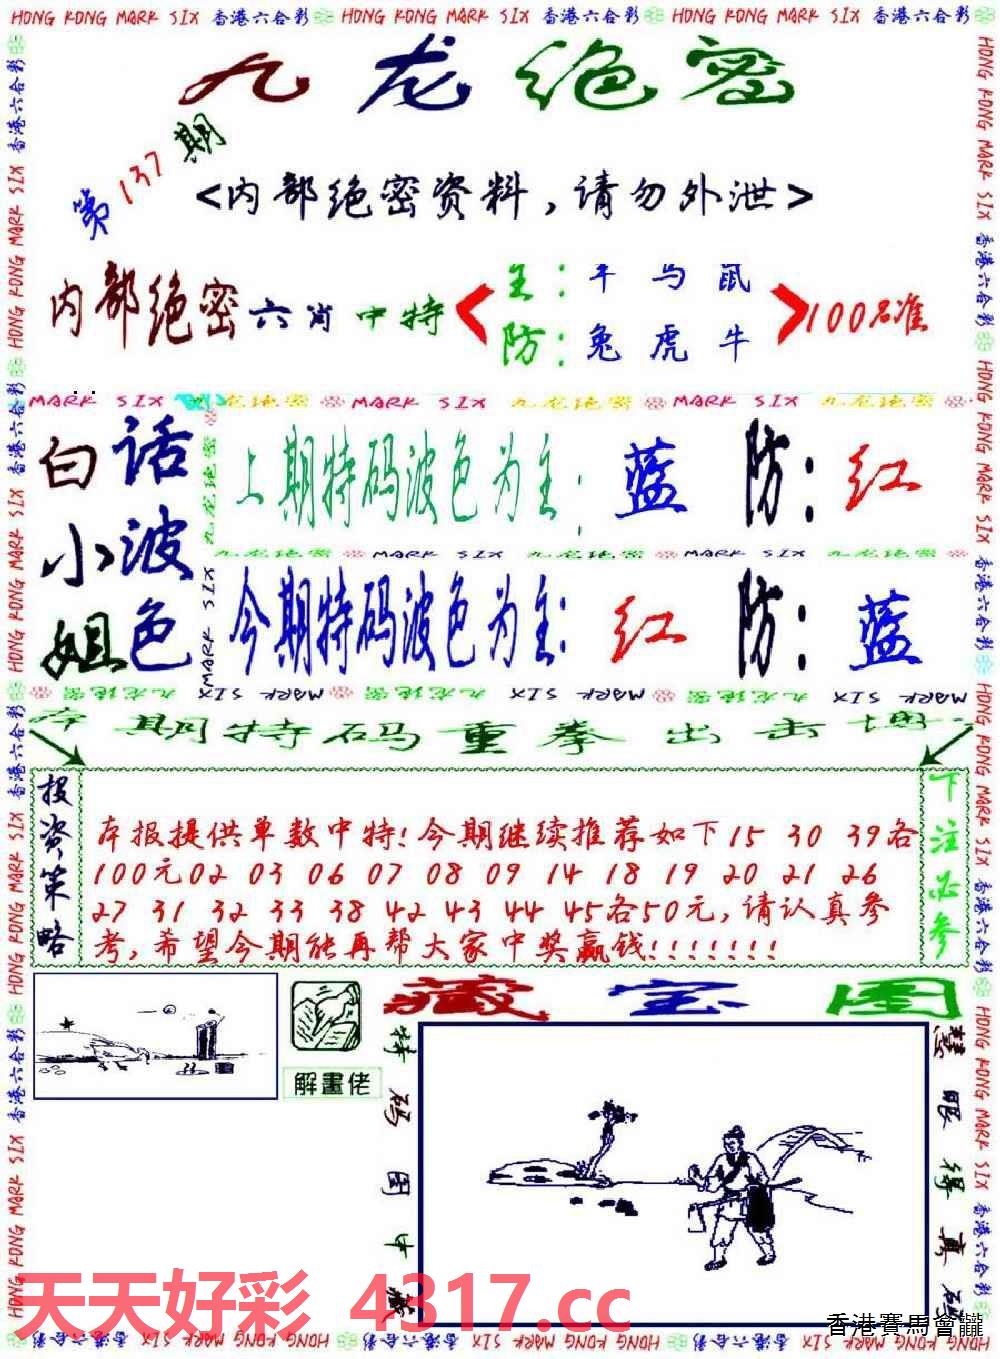 HONG KONG MARK SIX 香港六合彩 HONG KONG MARK SIX 香港六合彩 HONG KONG MARK SIX 香港六合彩
九龙绝密
第137期
<内部绝密资料,请勿外泄>
内部绝密六肖中特
主:羊马鼠
防:兔虎牛
100%准
MARK SIX 九龙绝密 MARK SIX 九龙绝密 MARK SIX 九龙绝密
白小姐
话波色
上期特码波色为主:蓝 防:红
九龙绝密 MARK SIX 九龙绝密 MARK SIX 九龙绝密
今期特码波色为主:红 防:蓝
本期特码重拳出击
投资策略
本报提供单数中特!今期继续推荐如下15 30 39各
100元02 03 06 07 08 09 14 18 19 20 21 26
27 31 32 33 38 42 43 44 45各50元,请认真参
考,希望今期能再帮大家中奖赢钱!!!!!!!
下注必参
藏宝图
解畫佬
特码图中藏
慧眼得真码
天天好彩 4317.cc
香港賽馬會
HONG KONG MARK SIX 香港六合彩 HONG KONG MARK SIX 香港六合彩 HONG KONG MARK SIX 香港六合彩